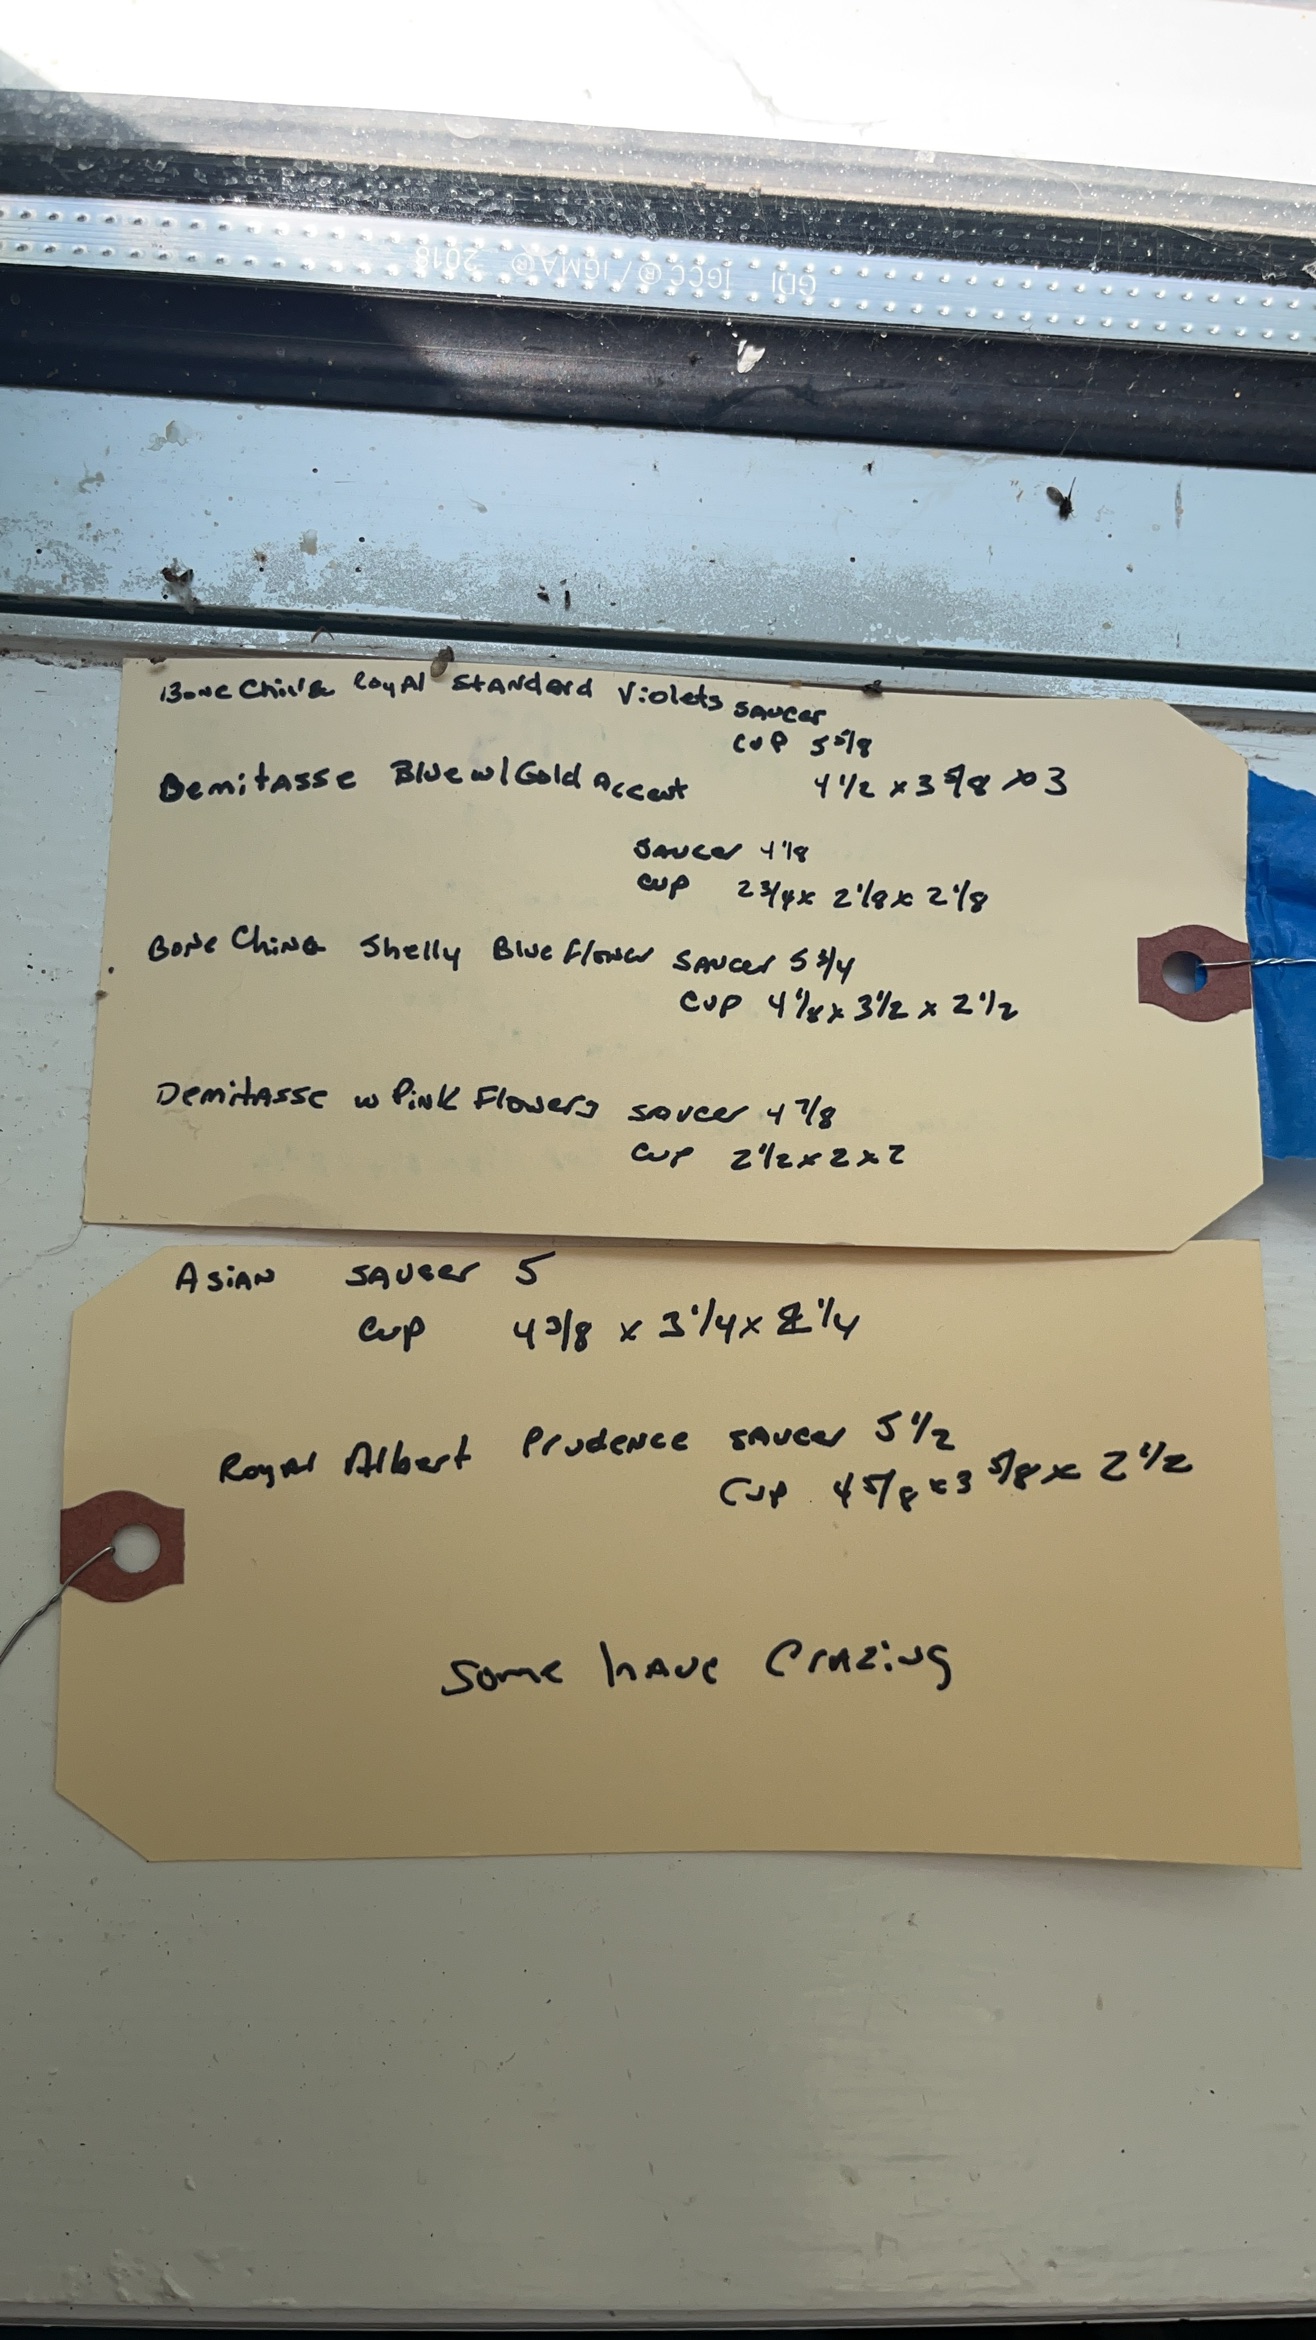 GDI IGCC®/IGMA® 2018
Bone China Royal Standard Violets saucer
cup 5 5/8
Demitasse Blue w/ Gold Accent 4 1/2 x 3 5/8 x 3
saucer 4 1/8
cup 2 3/4 x 2 1/8 x 2 1/8
Bone China Shelly Blue flower saucer 5 3/4
cup 4 1/8 x 3 1/2 x 2 1/2
Demitasse w Pink Flowers saucer 4 7/8
cup 2 1/2 x 2 x 2
Asian saucer 5
cup 4 3/8 x 3 1/4 x 2 1/4
Royal Albert Prudence saucer 5 1/2
Cup 4 5/8 x 3 5/8 x 2 1/2
Some have Crazing